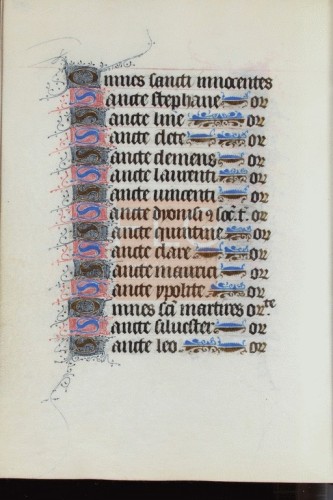 Omnes sancti innocentes
Sancte stephane or
Sancte line or
Sancte clete or
Sancte clemens or
Sancte laurenti or
Sancte vincenti or
Sancte dyonisi ⁊ soc̄. or
Sancte quintine or
Sancte clare or
Sancte maurici or
Sancte ypolite or
Omnes sc̄i martires orte
Sancte silvester or
Sancte leo or